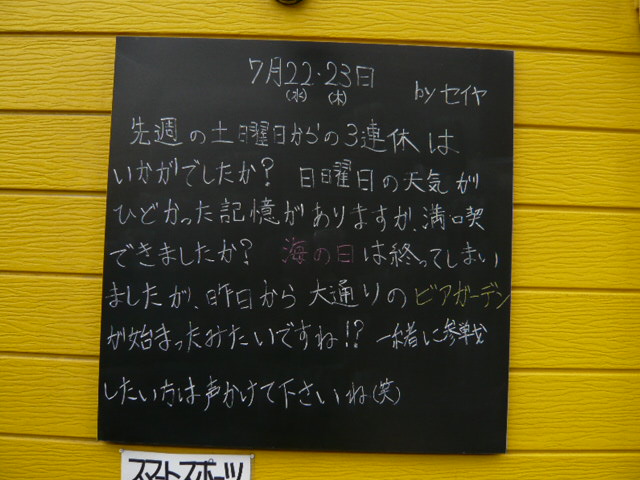 7月22・23日
(水) (木)
by セイヤ
先週の土日曜日からの3連休は
いかがでしたか? 日曜日の天気が
ひどかった記憶がありますが、満喫
できましたか? 海の日は終ってしまい
ましたが、昨日から大通りのビアガーデン
が始まったみたいですね!? 一緒に参戦
したい方は声かけて下さいね(笑)
スマートスポーツ